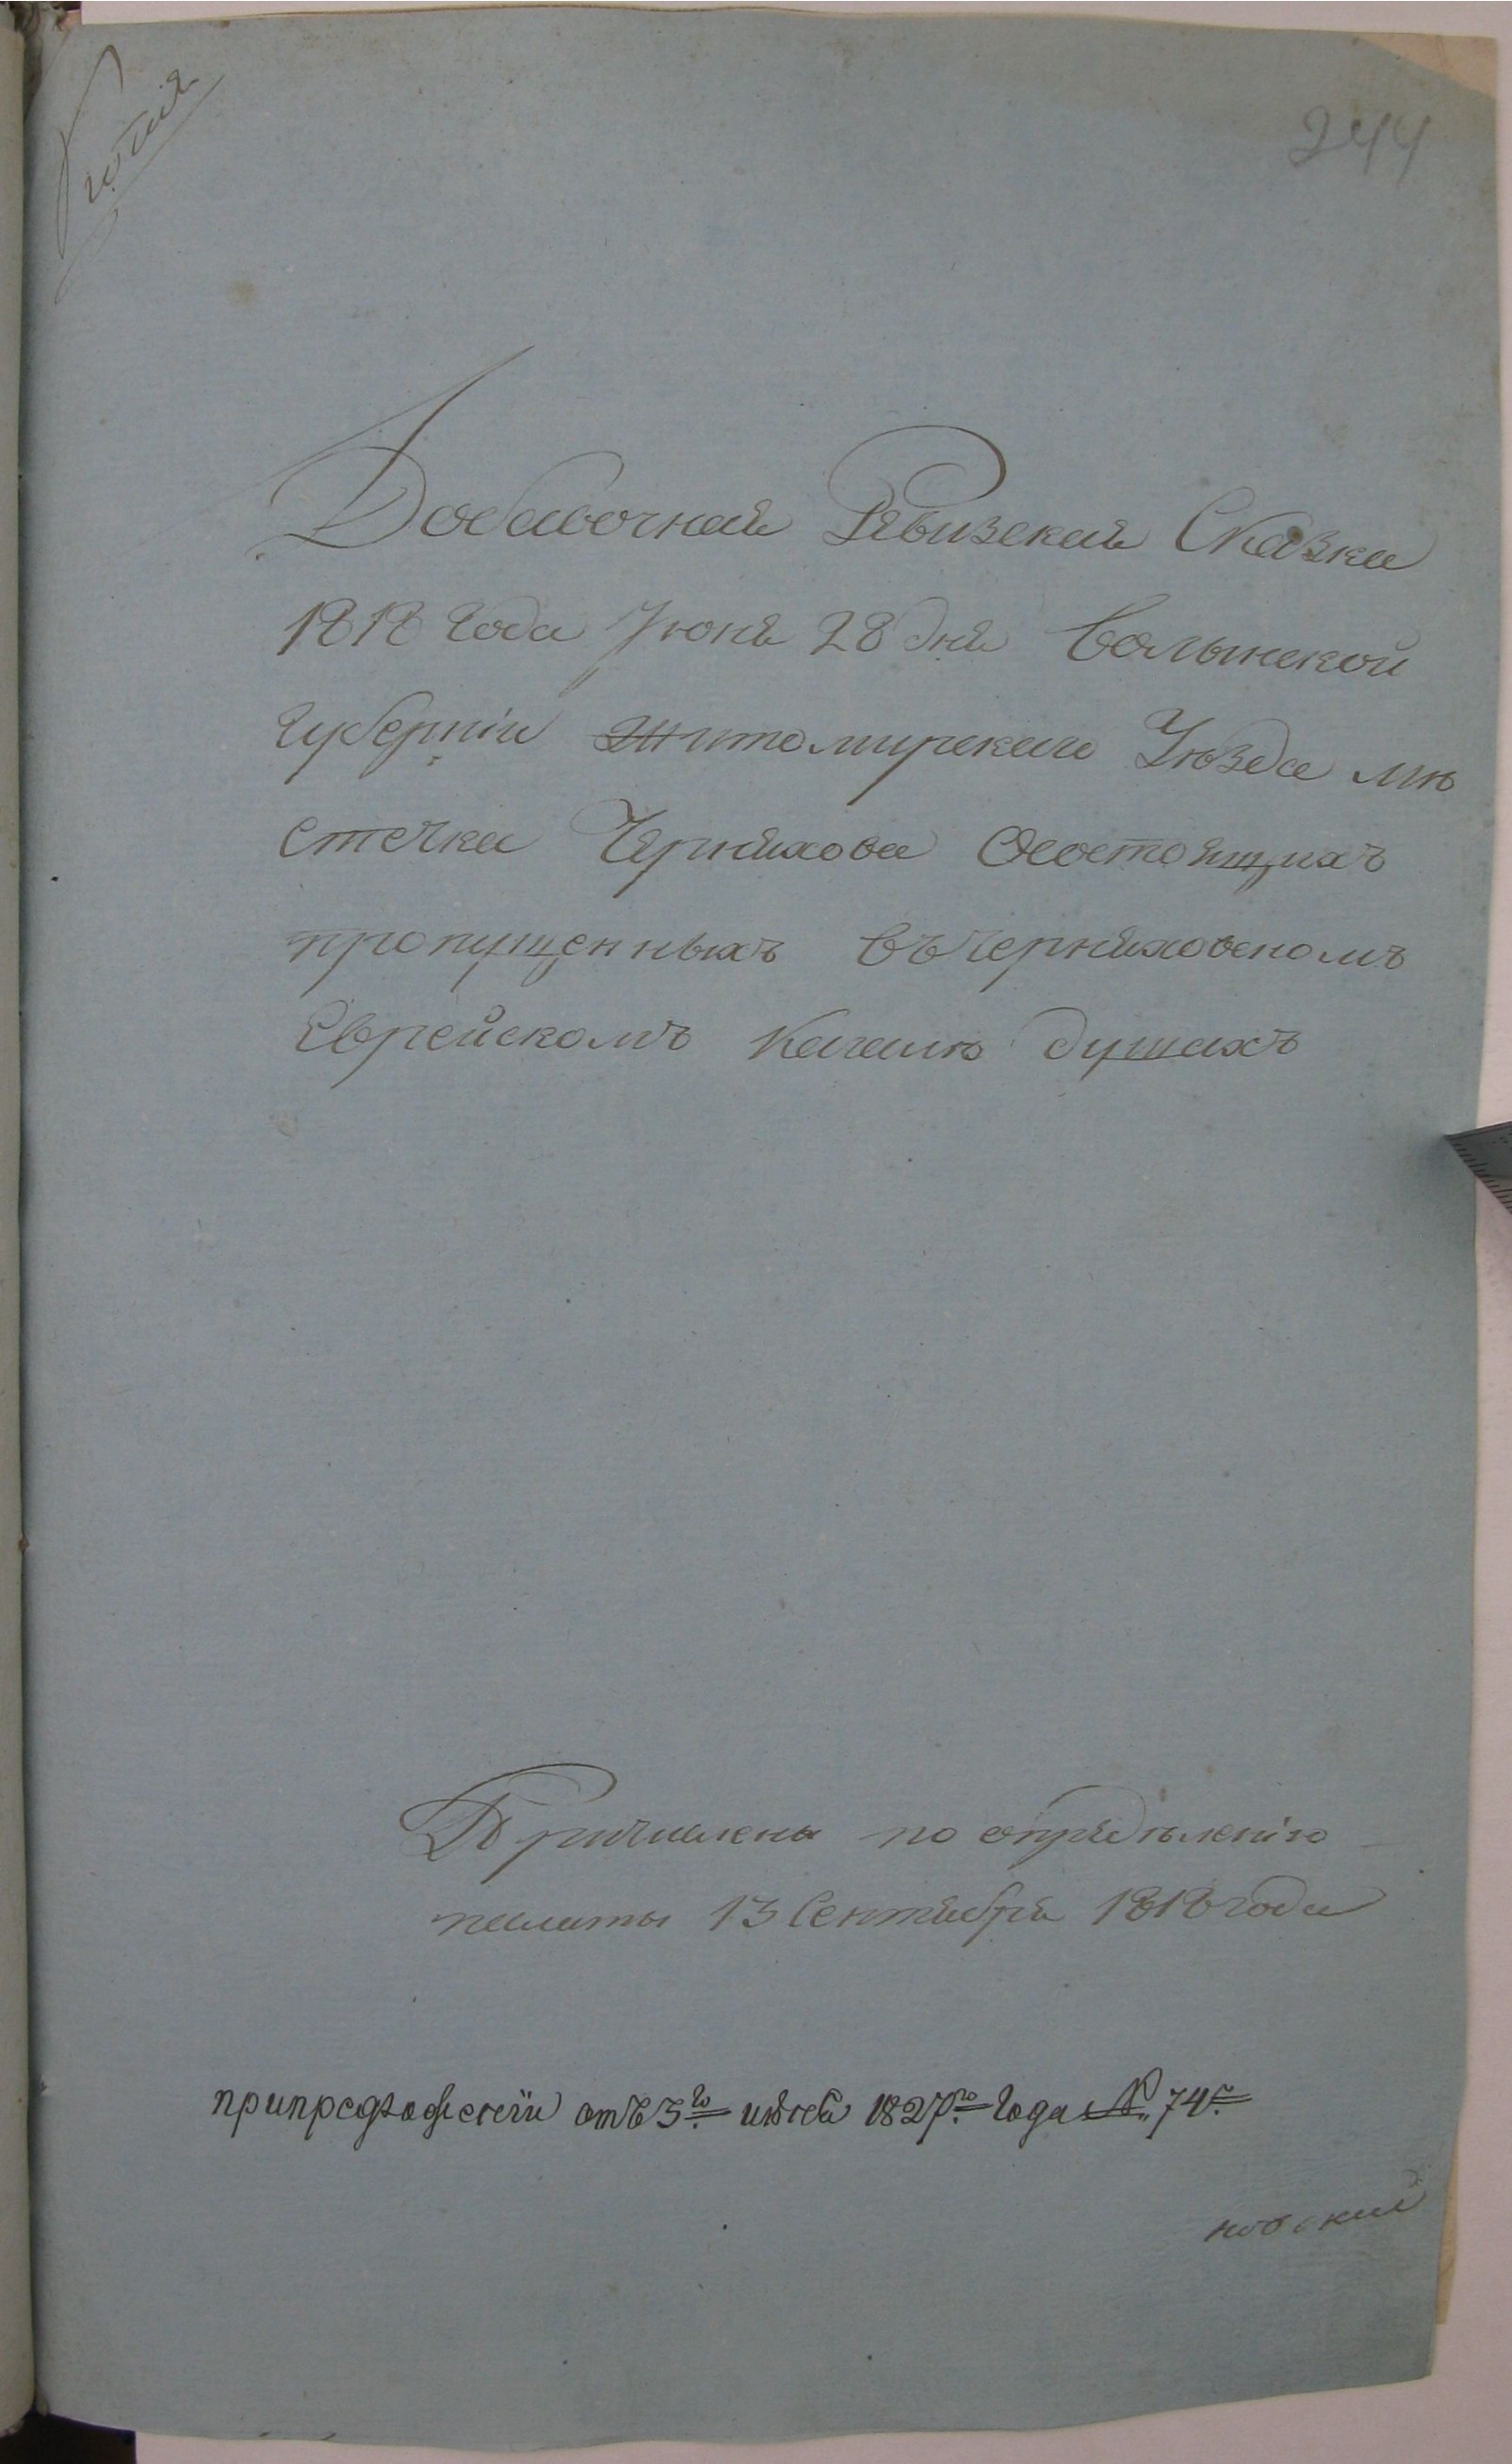 Копия
244
Добавочная Ревизская Сказка
1818 года Июня 28 дня Волынской
Губерніи Житомирскаго Уѣзда мѣ
стечка Черняхова Осостоящихъ
пропущенныхъ въ Черняховскомъ
Еврейскомъ Кагалѣ душахъ
Причислены по опредѣленію
палаты 13 Сентября 1818 года
припредложеніи отъ 5го 1827го года № 74